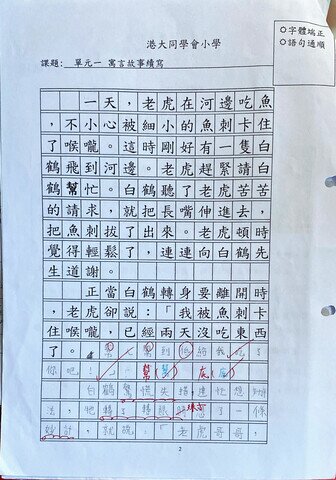 ○字體端正
○語句通順
港大同學會小學
課題: 單元一 寓言故事續寫
一天,老虎在河邊吃魚
,不小心被細小的魚刺卡住
了喉嚨。這時剛好有一隻白
鶴飛到河邊。老虎趕緊請白
鶴幫忙。白鶴聽了老虎苦苦
的請求,就把長嘴伸進去,
把魚刺拔了出來。老虎頓時
覺得輕鬆了,連連向白鶴先
生道謝。
正當白鶴轉身要離開時
,老虎卻說:「我被魚刺卡
住喉嚨,已經兩天沒吃東西
了。幫 到
你吧!」 幫 底
白鶴驚慌失措連忙想辦
法,牠轉了轉眼 了一條
妙計,就說:「老虎哥哥,
2